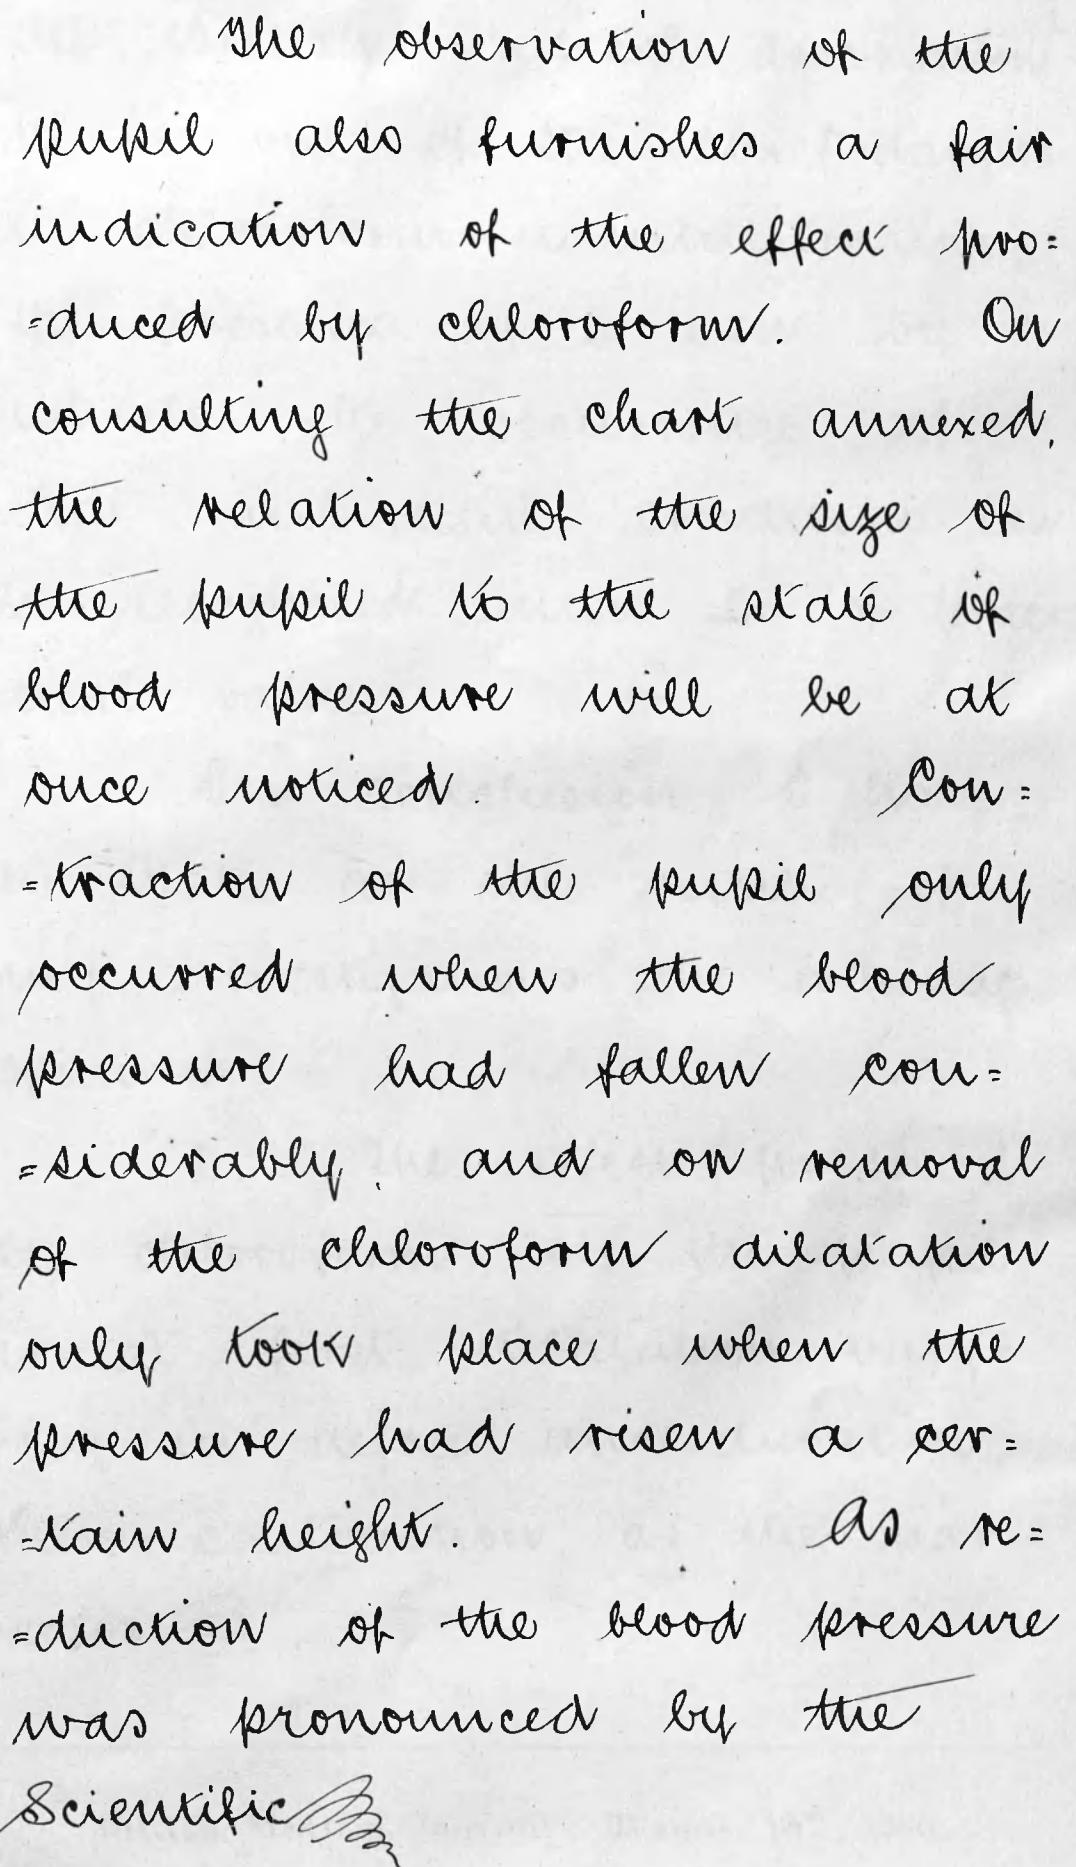 The observation of the
pupil also furnishes a fair
indication of the effect pro=
=duced by chloroform. On
consulting the chart annexed,
the relation of the size of
the pupil to the state of
blood pressure will be at
once noticed. Con=
=traction of the pupil only
occurred when the blood
pressure had fallen con=
=siderably, and on removal
of the chloroform dilatation
only took place when the
pressure had risen a cer=
=tain height. As re=
=duction of the blood pressure
was pronounced by the
Scientific